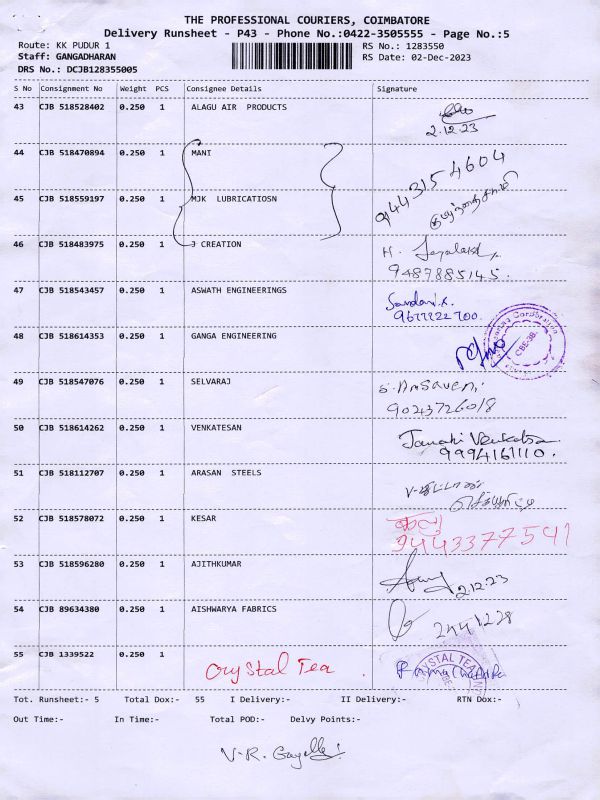 THE PROFESSIONAL COURIERS, COIMBATORE
Delivery Runsheet - P43 - Phone No.:0422-3505555 - Page No.:5
Route: KK PUDUR 1
RS No.: 1283550
Staff: GANGADHARAN
RS Date: 02-Dec-2023
DRS No.: DCJB128355005
S No Consignment No Weight PCS Consignee Details Signature
43 CJB 518528402 0.250 1 ALAGU AIR PRODUCTS
2.12.23
44 CJB 518470894 0.250 1 MANI
9443154604
45 CJB 518559197 0.250 1 MJK LUBRICATIOSN
46 CJB 518483975 0.250 1 J CREATION
9487885145.
47 CJB 518543457 0.250 1 ASWATH ENGINEERINGS
48 CJB 518614353 0.250 1 GANGA ENGINEERING
49 CJB 518547076 0.250 1 SELVARAJ
9023726018
50 CJB 518614262 0.250 1 VENKATESAN
9994161110.
51 CJB 518112707 0.250 1 ARASAN STEELS
52 CJB 518578072 0.250 1 KESAR
9443377541
53 CJB 518596280 0.250 1 AJITHKUMAR
2.12.23
54 CJB 89634380 0.250 1 AISHWARYA FABRICS
55 CJB 1339522 0.250 1 Crystal Tea
Tot. Runsheet:- 5 Total Dox:- 55 I Delivery:- II Delivery:- RTN Dox:-
Out Time:- In Time:- Total POD:- Delvy Points:-